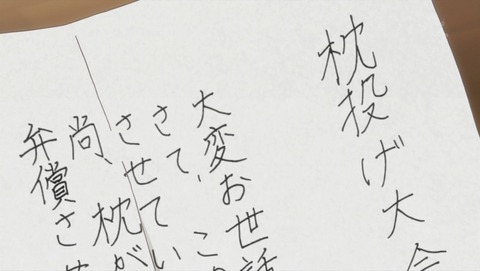 枕投げ大会
大変お世話
さて、この
させてい
尚、枕が
弁償さ